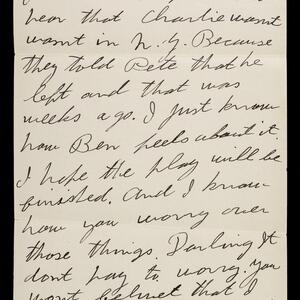 hear that Charlie wasnt
wasnt in N.Y. Because
they told Pete that he
left and that was
weeks ago. I just know
how Ben feels about it.
I hope the play will be
finished. And I know
how you worry over
those things. Darling It
dont pay to worry. You
wont believe that I